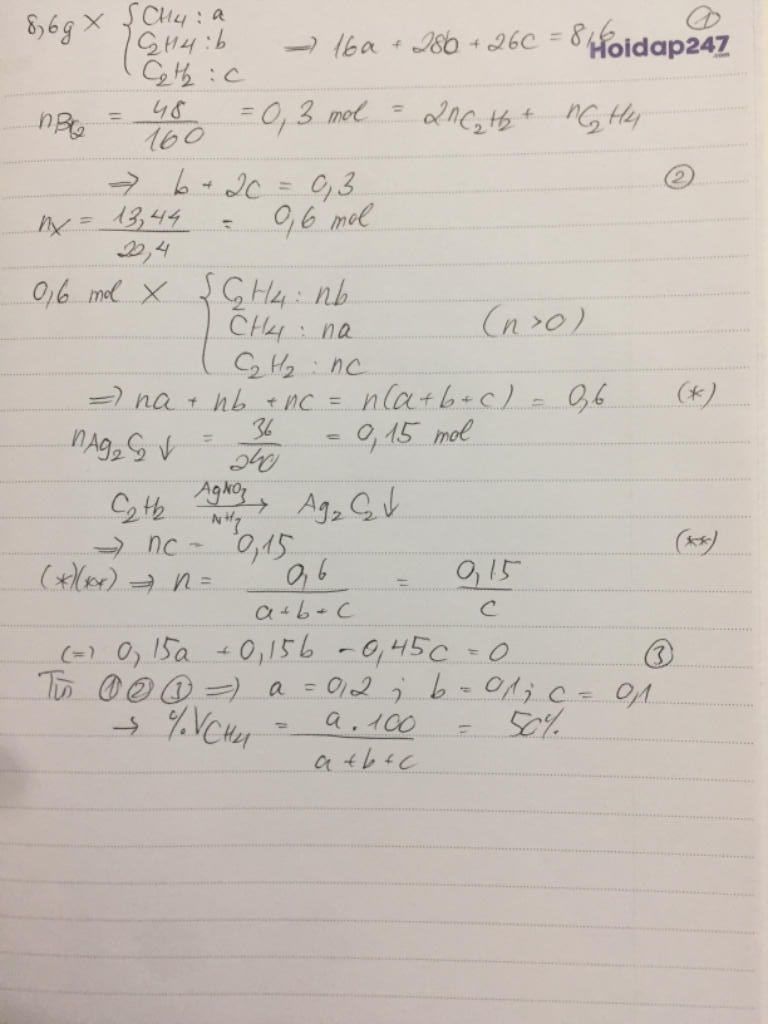 8,6g X { CH4 : a
C2H4 : b ⇒ 16a + 28b + 26c = 8,6 ①
C2H2 : c
Hoidap247.com
nBr2 = 48/160 = 0,3 mol = 2nC2H2 + nC2H4
⇒ b + 2c = 0,3 ②
nX = 13,44/22,4 = 0,6 mol
0,6 mol X { C2H4 : nb
CH4 : na (n >0)
C2H2 : nc
⇒ na + nb + nc = n(a+b+c) = 0,6 (*)
nAg2C2↓ = 36/240 = 0,15 mol
C2H2 AgNO3/NH3→ Ag2C2↓
⇒ nc = 0,15 (**)
(*)(**) ⇒ n = 0,6/a+b+c = 0,15/c
(=) 0,15a + 0,15b - 0,45c = 0 ③
Từ ①②③ ⇒ a = 0,2 ; b = 0,1 ; c = 0,1
→ %VCH4 = a.100/a+b+c = 50%